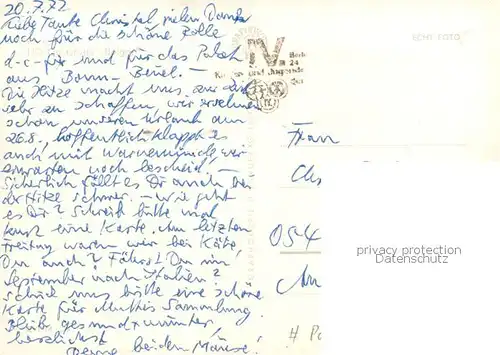 20.7.72
Liebe Tante Christel, vielen Dank
noch für die schöne Rolle
d-c-fix und für das Paket
aus Bonn-Beuel. -
Die Hitze macht uns zur Zeit
sehr zu schaffen, wir ersehnen
schon unseren Urlaub am
26.8., hoffentlich klappt es
auch mit Warnemünde, wir
erwarten noch Bescheid. -
Sicherlich fällt es Dir auch bei
der Hitze schwer. - Wie geht
es Dir? Schreib bitte mal
kurz eine Karte. Am letzten
Freitag waren wir bei Käte,
Du auch? Fährst Du im
September nach Italien?
Schick uns bitte eine schöne
Karte für Muttis Sammlung.
Bleib gesund + munter,
herzlichst
beiden Mäuse.
ECHT FOTO
und Jugend
Frau
054
privacy protection
Datenschutz